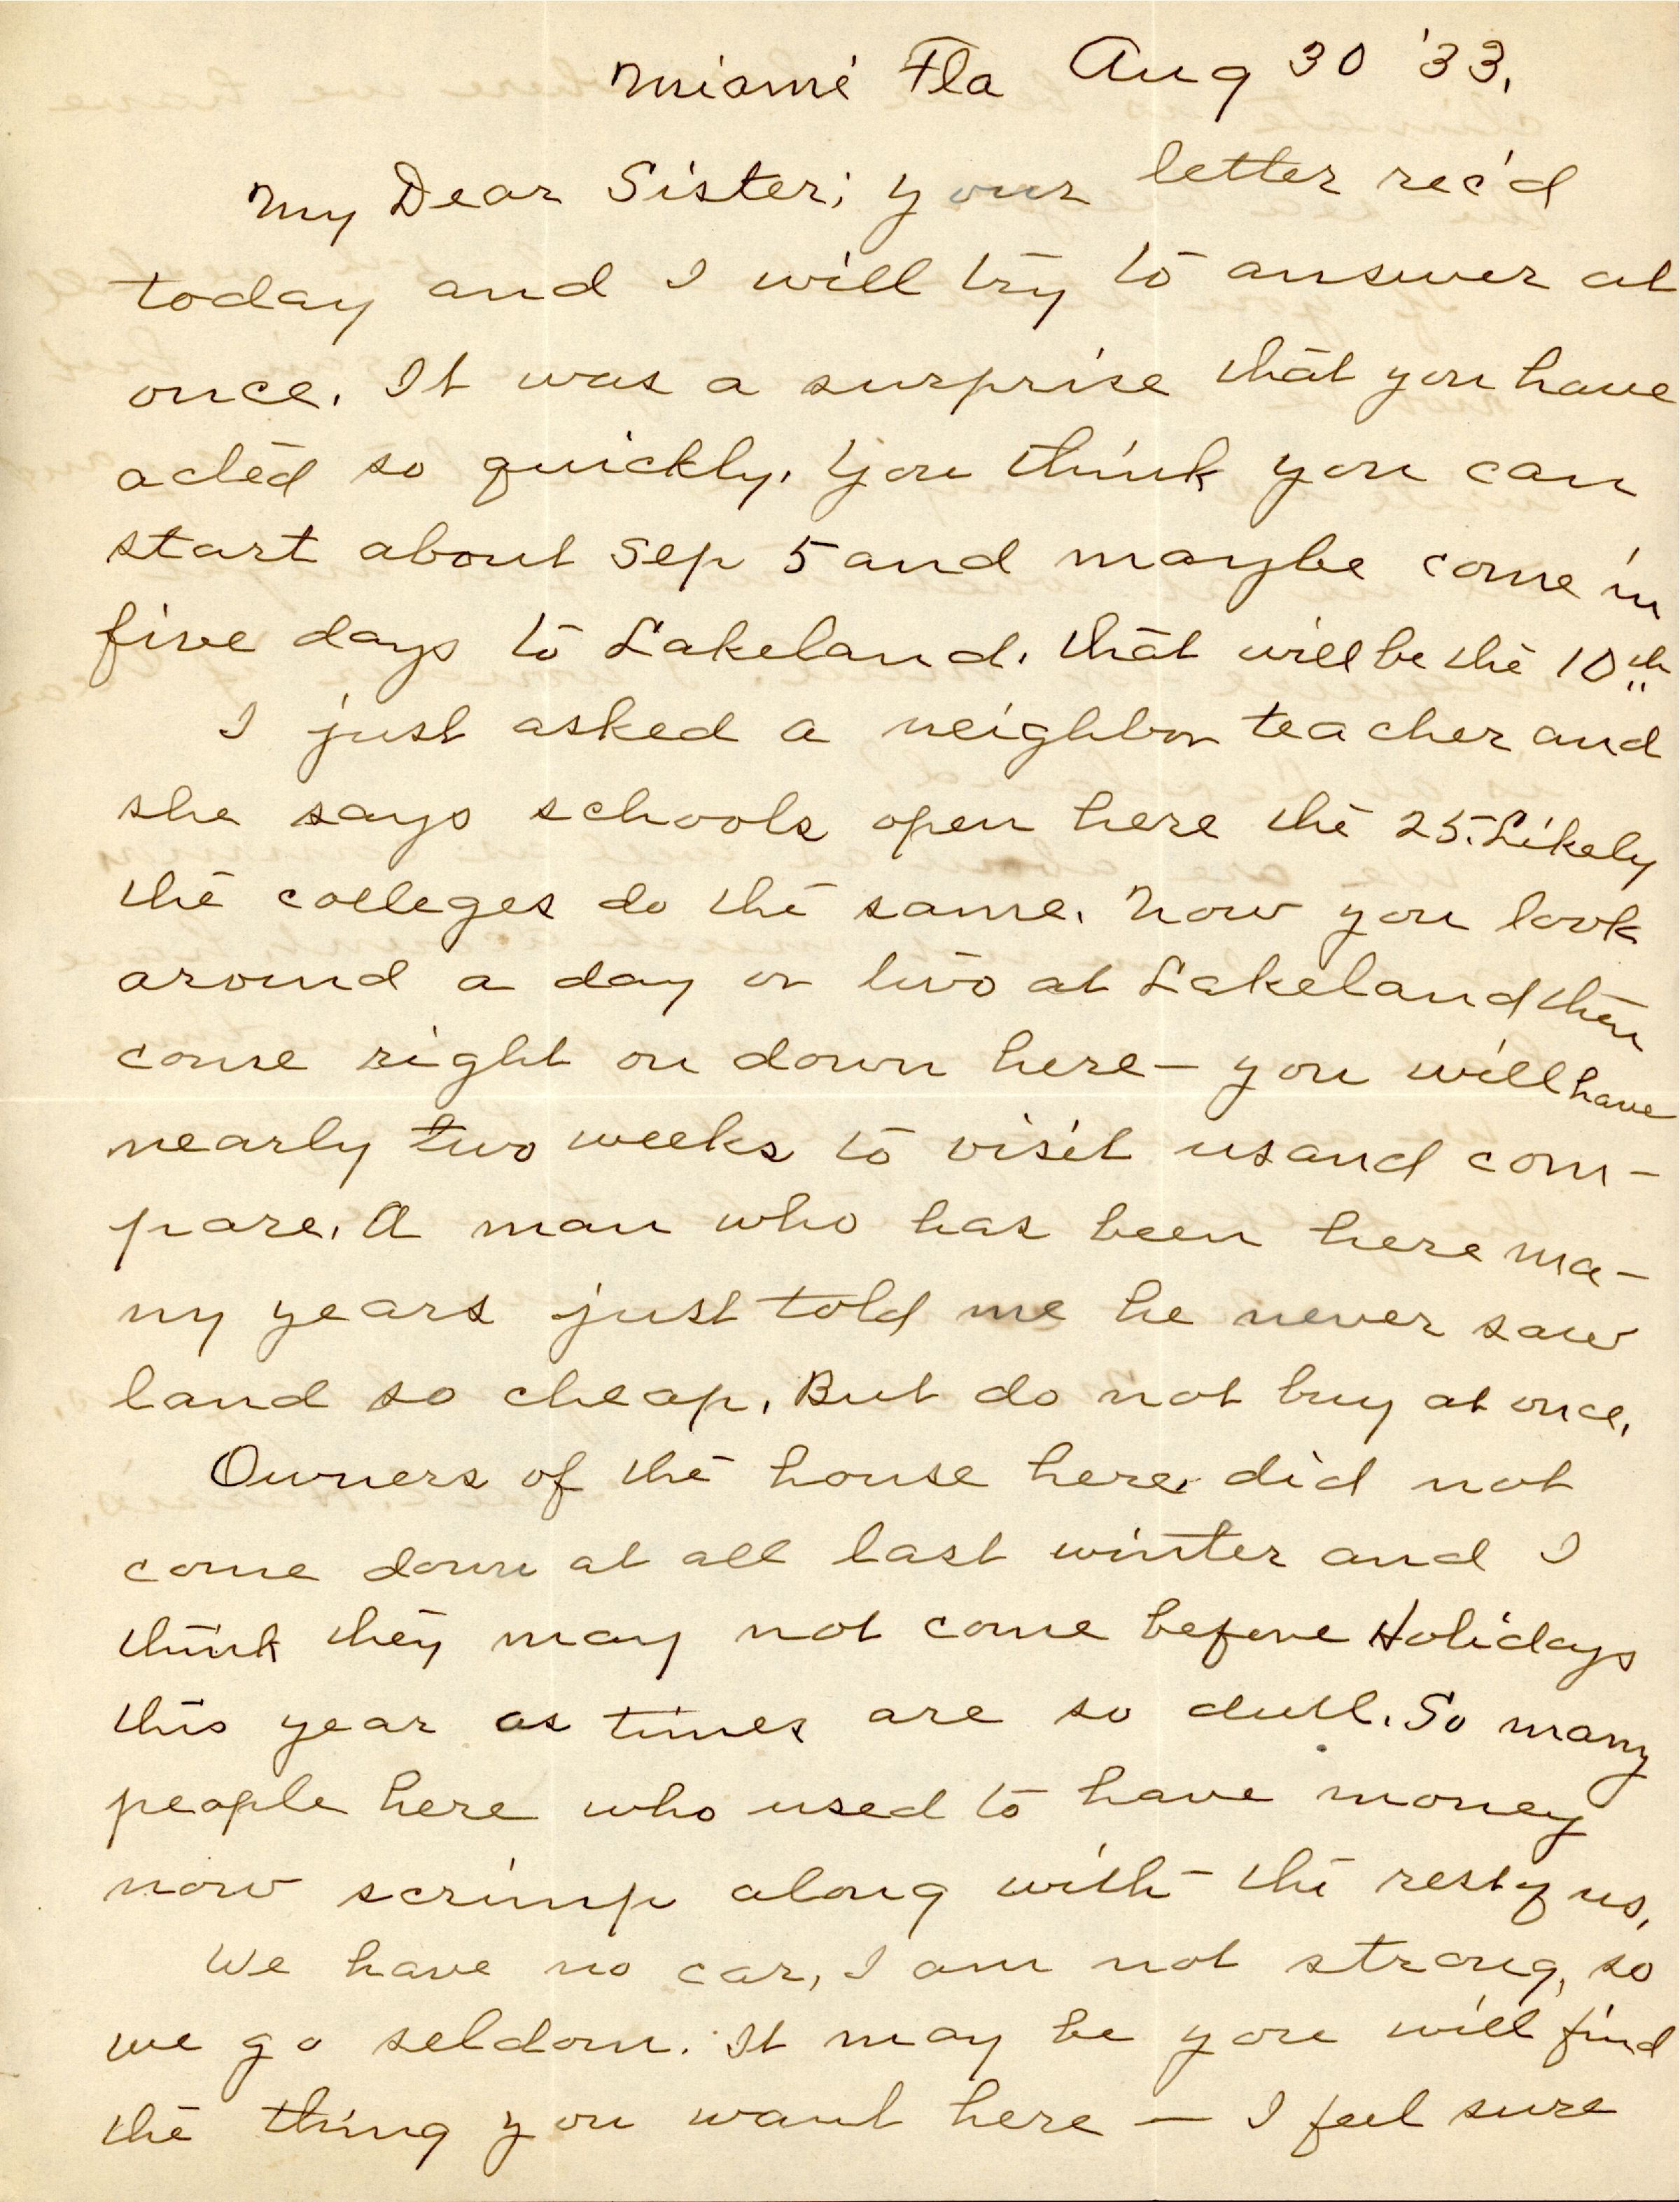 Miami Fla Aug 30 '33.
My Dear Sister; your letter rec'd
today and I will try to answer at
once. It was a surprise that you have
acted so quickly. You think you can
start about Sep 5 and maybe come in
five days to Lakeland. that will be the 10th
I just asked a neighbor teacher and
she says schools open here the 25. Likely
the colleges do the same. Now you look
around a day or two at Lakeland then
come right on down here — you will have
nearly two weeks to visit us and com-
pare. A man who has been here ma-
ny years just told me he never saw
land so cheap. But do not buy at once.
Owners of the house here did not
come down at all last winter and I
think they may not come before Holidays
this year as times are so dull. So many
people here who used to have money
now scrimp along with the rest of us.
We have no car, I am not strong, so
we go seldom. It may be you will find
the thing you want here — I feel sure